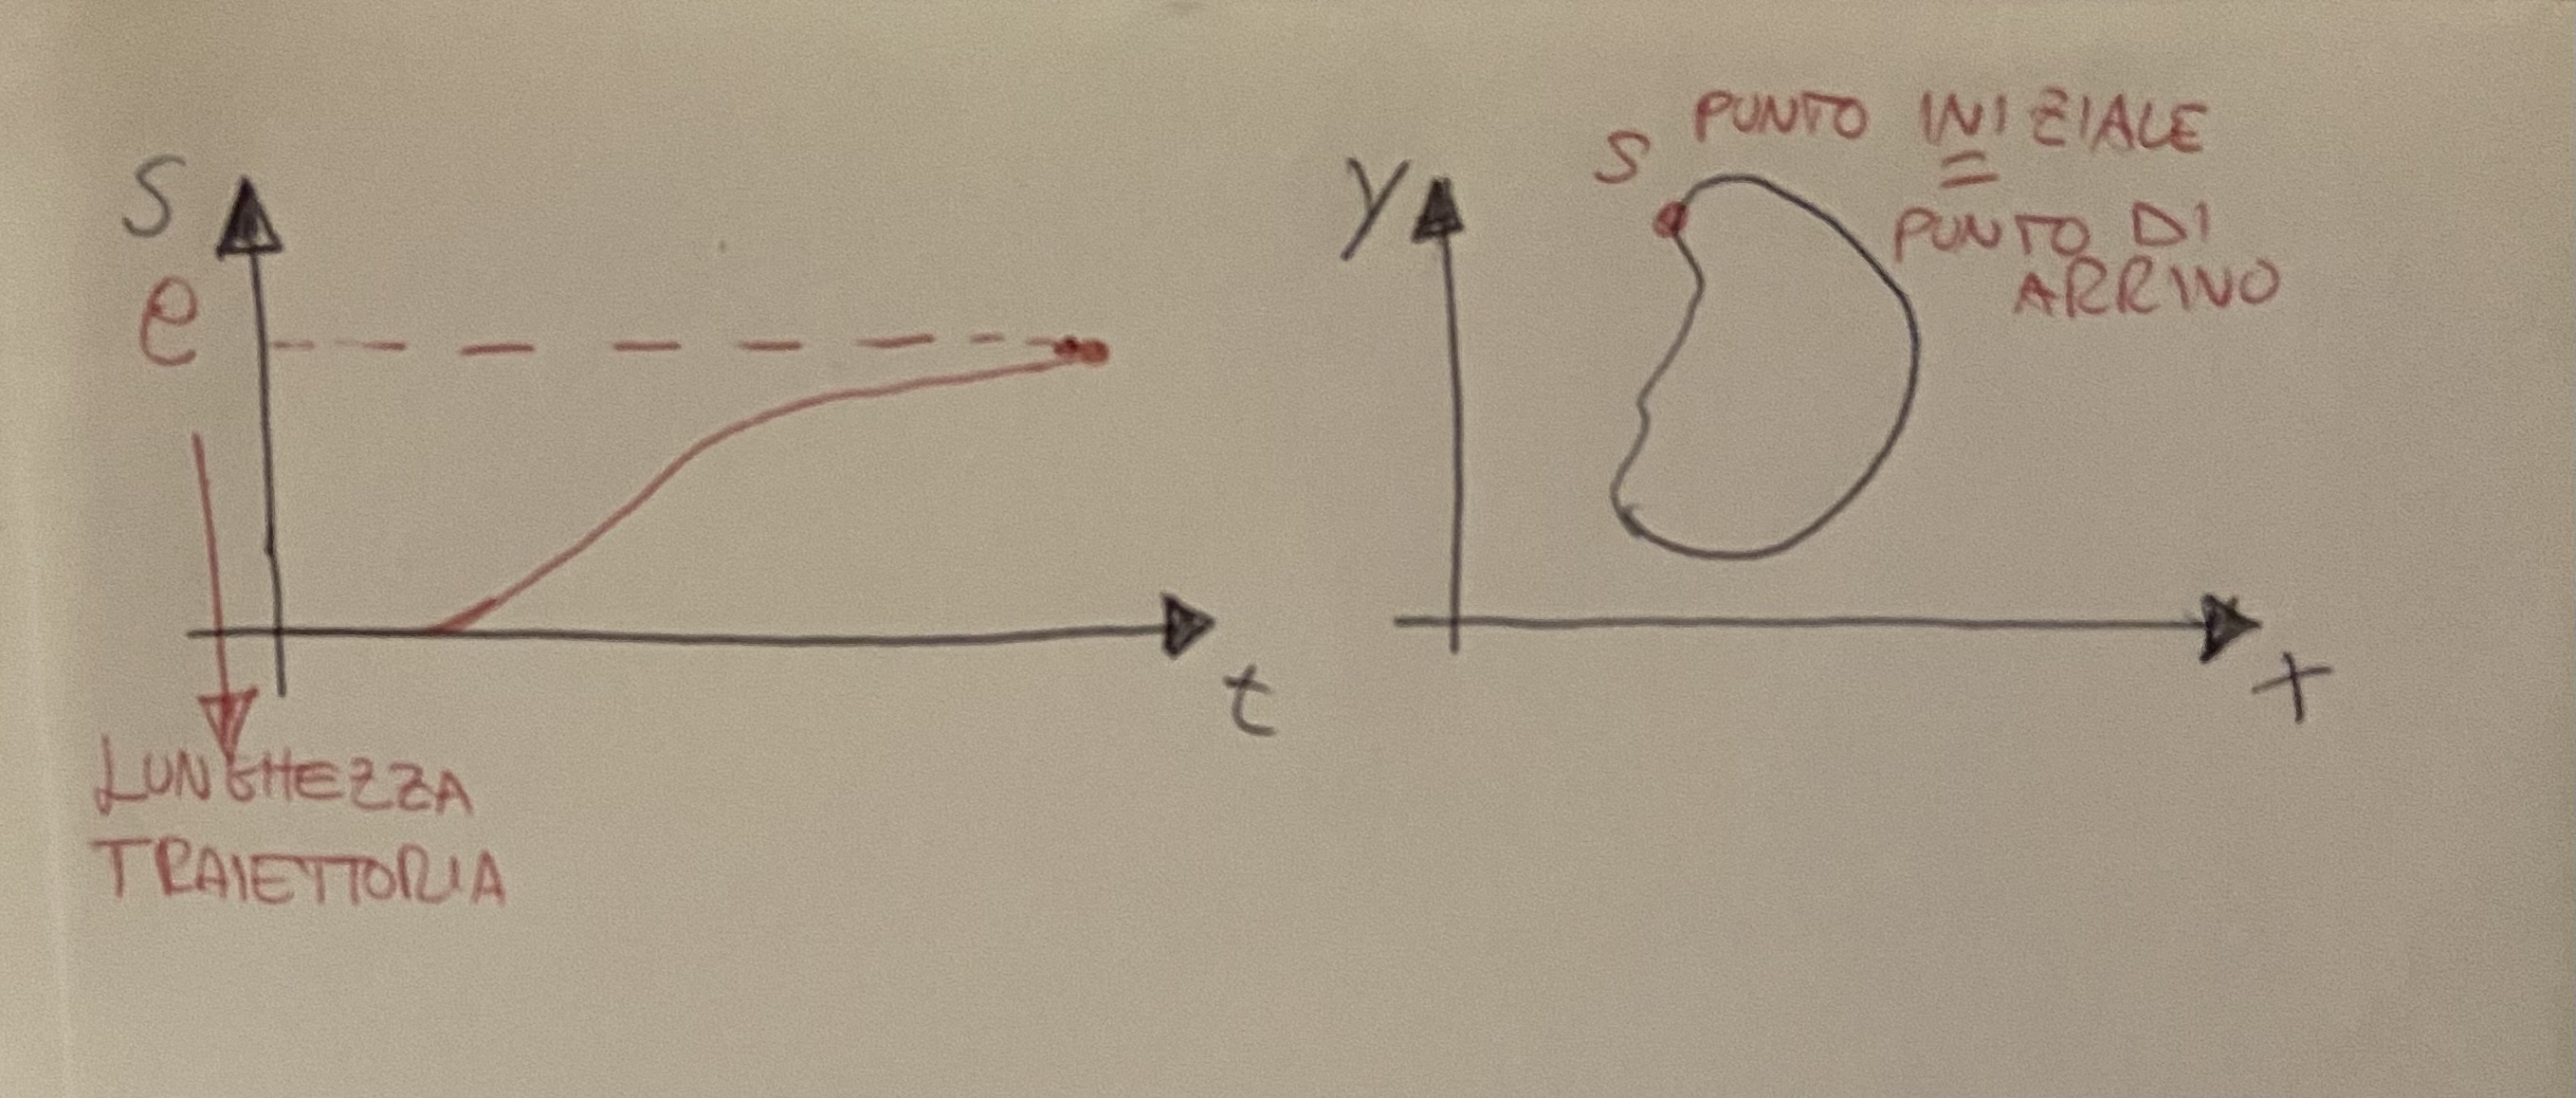 S
e
t
LUNGHEZZA
TRAIETTORIA
y
S
PUNTO INIZIALE
=
PUNTO DI
ARRIVO
x